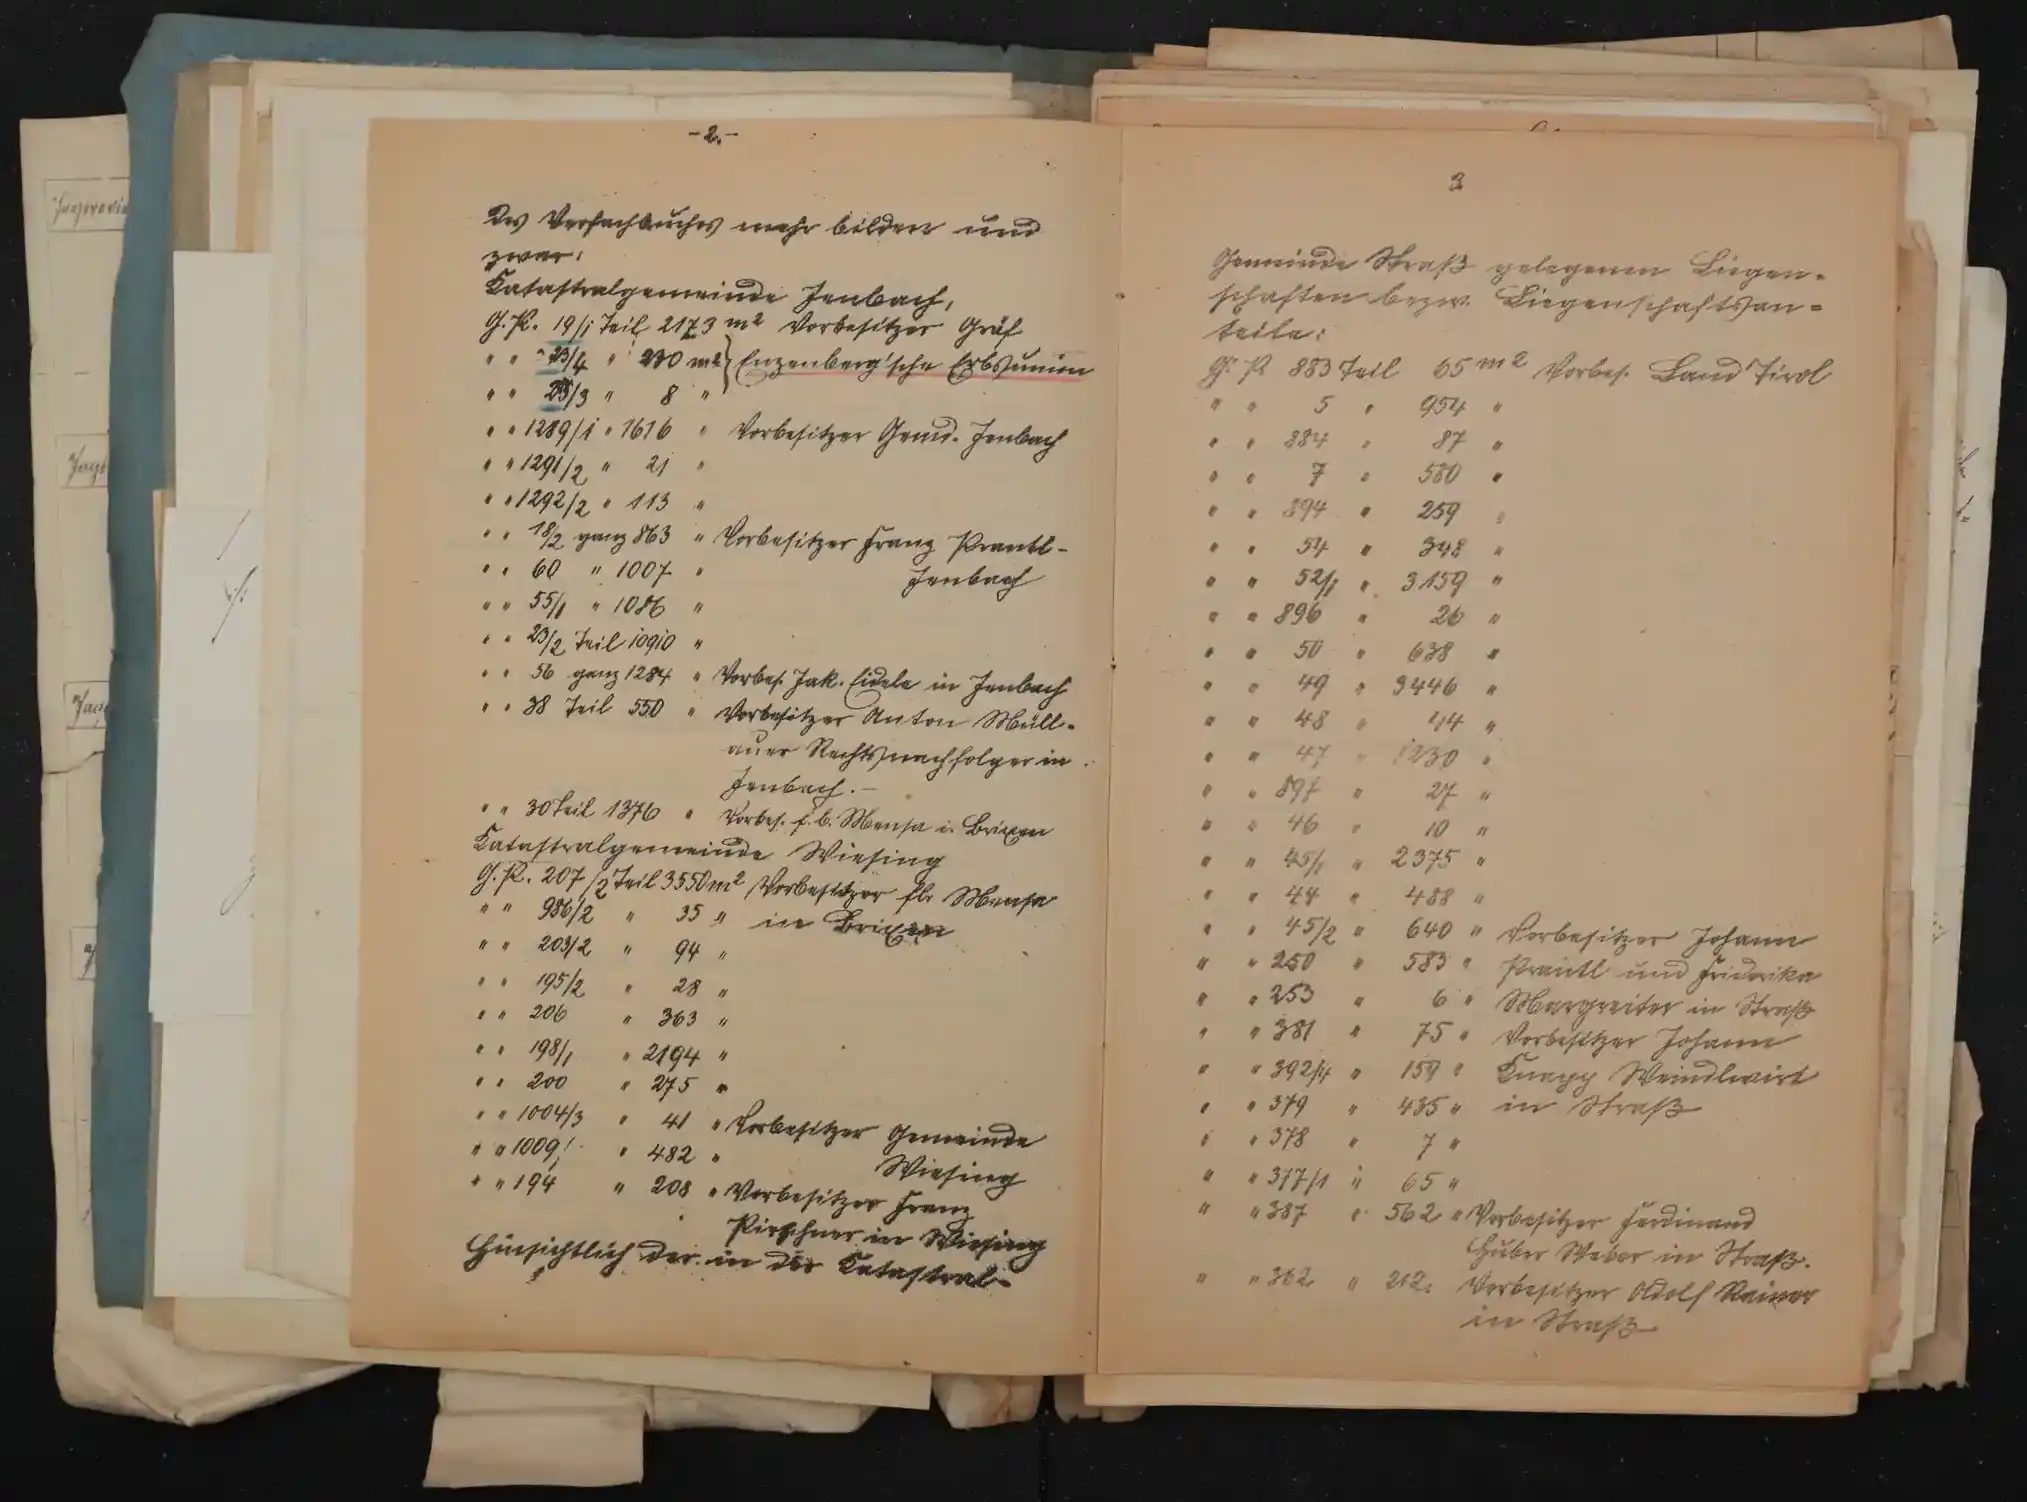 -2.-
des Verfachbuches mehr bilden und
zwar:
Katastralgemeinde Jenbach,
G. P. 19/1 Teil 2173 m2 Vorbesitzer Gräf
" " 23/4 " 230 m2 } Enzenberg'sche Erbsunion
" " 25/3 " 8 "
" " 1289/1 " 1616 " Vorbesitzer Gemd. Jenbach
" " 1291/2 " 21 "
" " 1292/2 " 113 "
" " 18/2 ganz 863 " Vorbesitzer Franz Prantl-
" " 60 " 1007 " Jenbach
" " 55/1 " 1086 "
" " 23/2 Teil 10910 "
" " 56 ganz 1284 " Vorbes. Jak. Eidele in Jenbach
" " 38 Teil 550 " Vorbesitzer Anton Müll-
auer Rechtsnachfolger in
Jenbach.-
" " 30 Teil 1376 " Vorbes. f. b. Mensa i. Brixen
Katastralgemeinde Wiesing
G. P. 207/2 Teil 3550 m2 Vorbesitzer fb. Mensa
" " 986/2 " 35 " in Brixen
" " 203/2 " 94 "
" " 195/2 " 28 "
" " 206 " 363 "
" " 198/1 " 2194 "
" " 200 " 275 "
" " 1004/3 " 41 " Vorbesitzer Gemeinde
" " 1009/ " 482 " Wiesing
" " 194 " 208 " Vorbesitzer Franz
Pirchner in Wiesing
Hinsichtlich der in der Katastral-
3
Gemeinde Straß gelegenen Liegen-
schaften bezw. Liegenschaftsan-
teile:
G. P. 883 Teil 65 m2 Vorbes. Land Tirol
" " 5 " 954 "
" " 884 " 87 "
" " 7 " 580 "
" " 894 " 259 "
" " 54 " 348 "
" " 52/1 " 3159 "
" " 896 " 26 "
" " 50 " 638 "
" " 49 " 3446 "
" " 48 " 44 "
" " 47 " 1230 "
" " 897 " 27 "
" " 46 " 10 "
" " 45/1 " 2375 "
" " 44 " 488 "
" " 45/2 " 640 " Vorbesitzer Johann
" " 250 " 583 " Prantl und Friderika
" " 253 " 6 " Margreiter in Straß
" " 381 " 75 " Vorbesitzer Johann
" " 392/4 " 159 " Knapp Weindlwirt
" " 379 " 435 " in Straß
" " 378 " 7 "
" " 317/1 " 65 "
" " 387 " 562 " Vorbesitzer Ferdinand
Huber Weber in Straß.
" " 362 " 212 " Vorbesitzer Adolf Rainer
in Straß